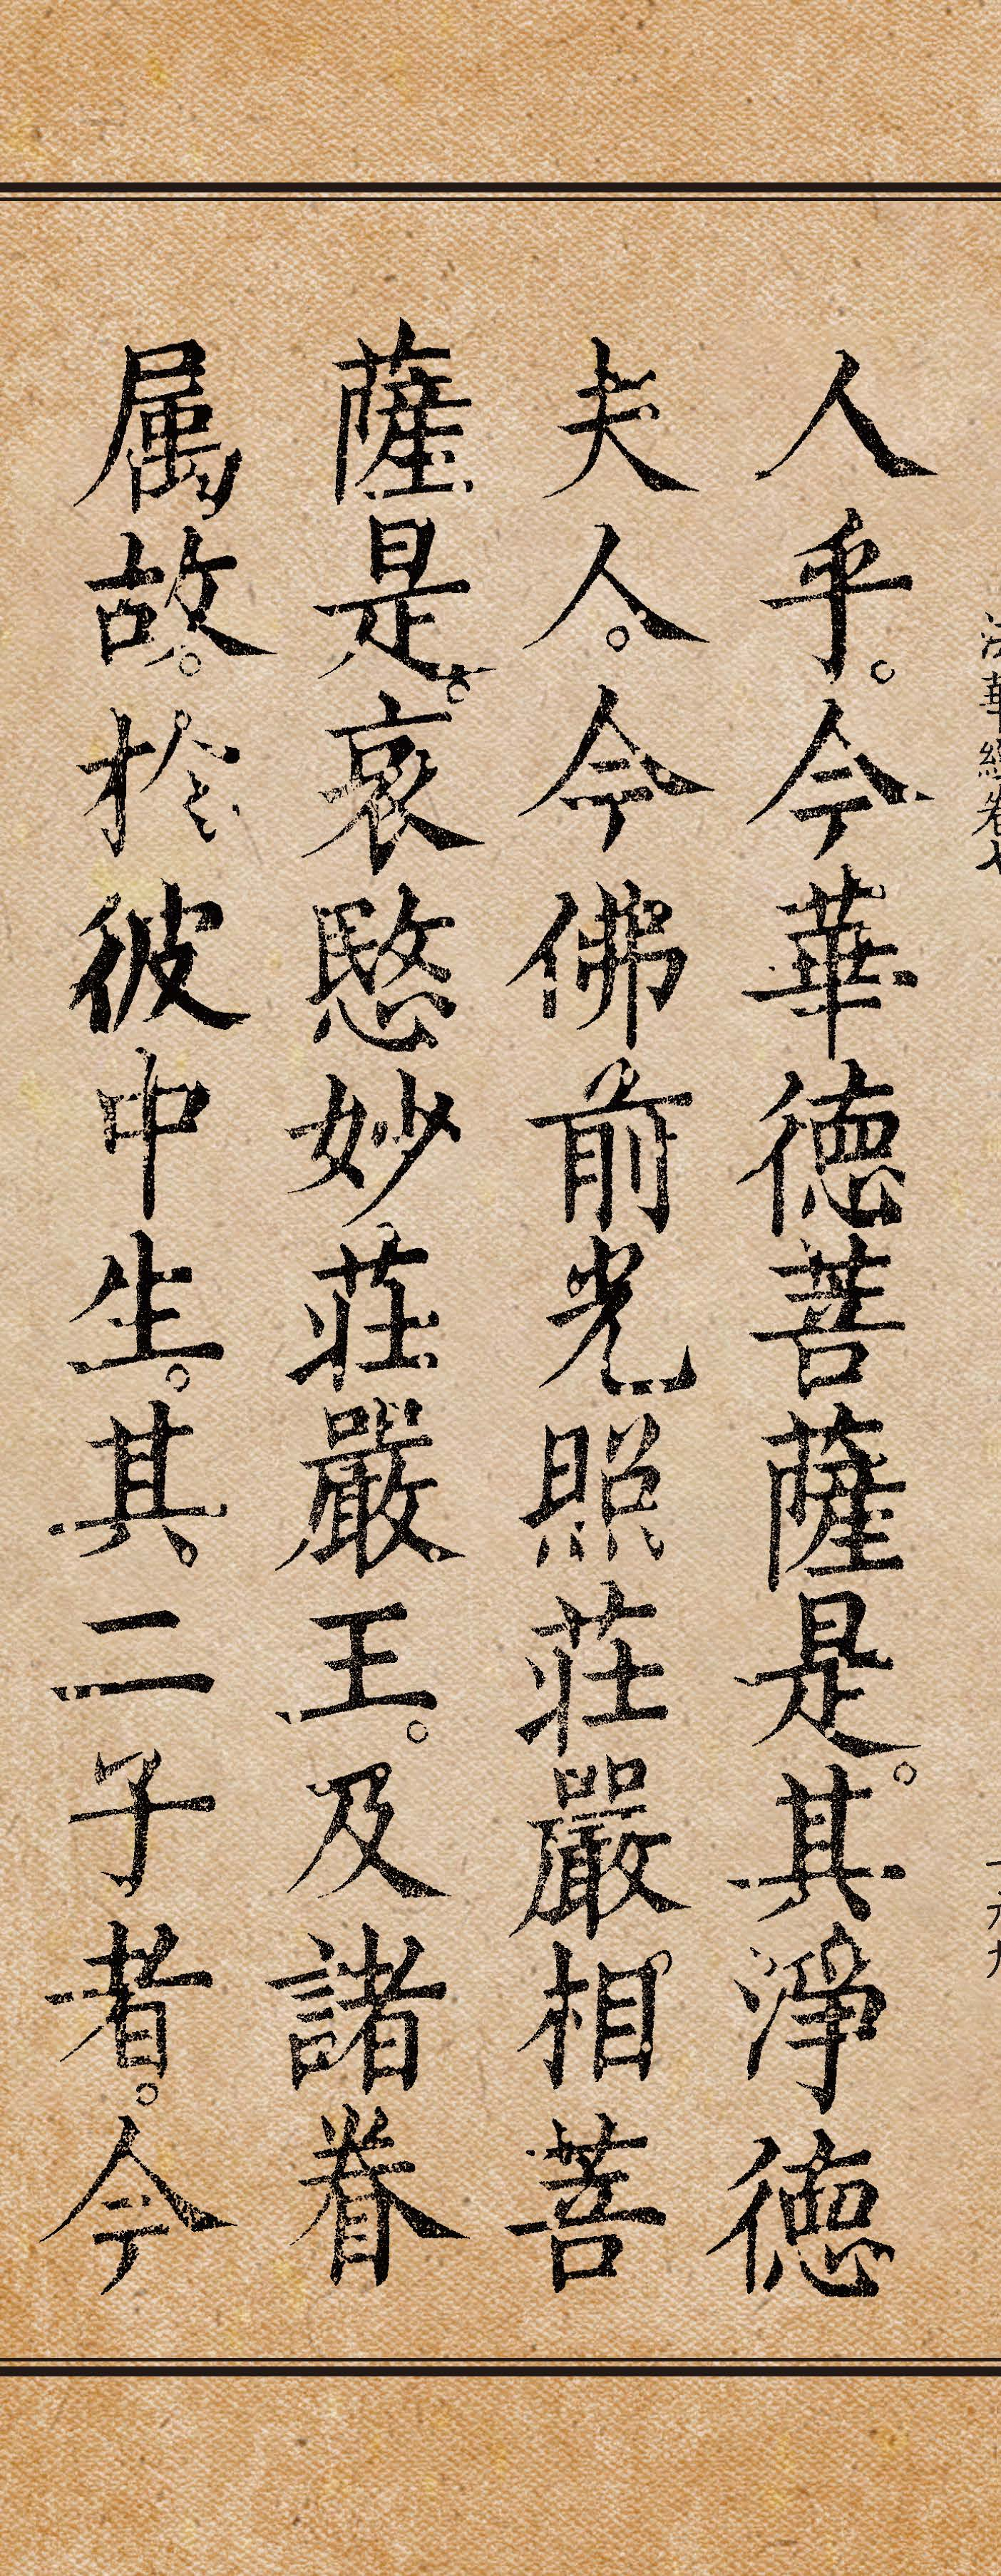 法華經卷七
人乎。今華德菩薩是。其淨德
夫人。今佛前光照莊嚴相。菩
薩是。哀愍妙莊嚴王。及諸眷
属故。於彼中生。其二子者。今